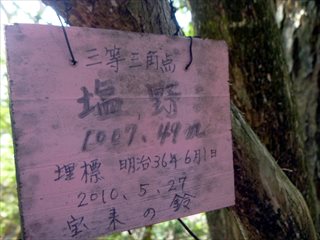 三等三角点
塩野
1007.49m
埋標 明治36年6月1日
2010.5.27
宝来の鈴